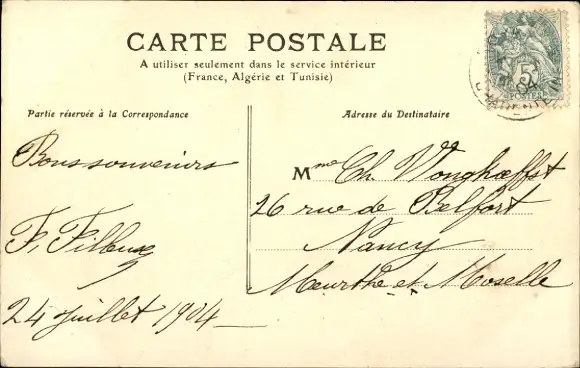 CARTE POSTALE
A utiliser seulement dans le service intérieur
(France, Algérie et Tunisie)
Partie réservée à la Correspondance
Adresse du Destinataire
Bons souvenirs
24 juillet 1904
Mme Ch. Vonghœffst
26 rue de Belfort
Nancy
Meurthe et Moselle
5